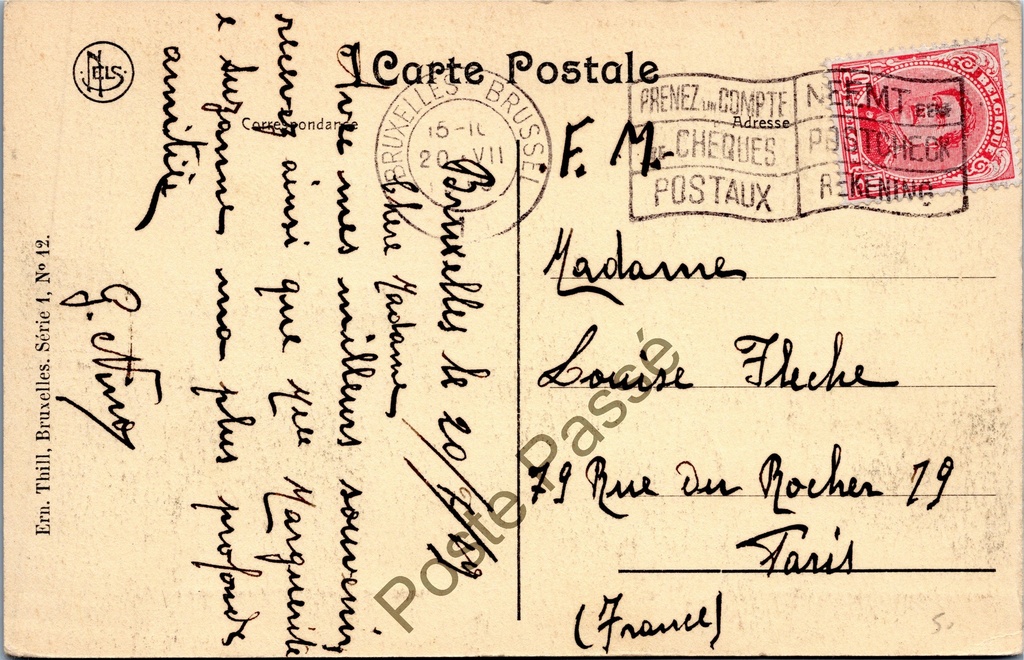 Carte Postale
Correspondance
Adresse
NELS
Ern. Thill, Bruxelles. Série 1, No 12.
BRUXELLES BRUSSEL
15-1
20 VII
PRENEZ UN COMPTE
CHEQUES
POSTAUX
NEEMT EEN
POSTCHECK
REKENING
BELGIQUE
F. M.
Madame
Louise Fleche
79 Rue Du Rocher 79
Paris
(France)
Bruxelles le 20/7/
Chère Madame
Avec mes meilleurs souvenirs
recevez ainsi que Mlle Marguerite
e Suzanne ma plus profonde
amitiée
G. Nino
Poste Passé
5.